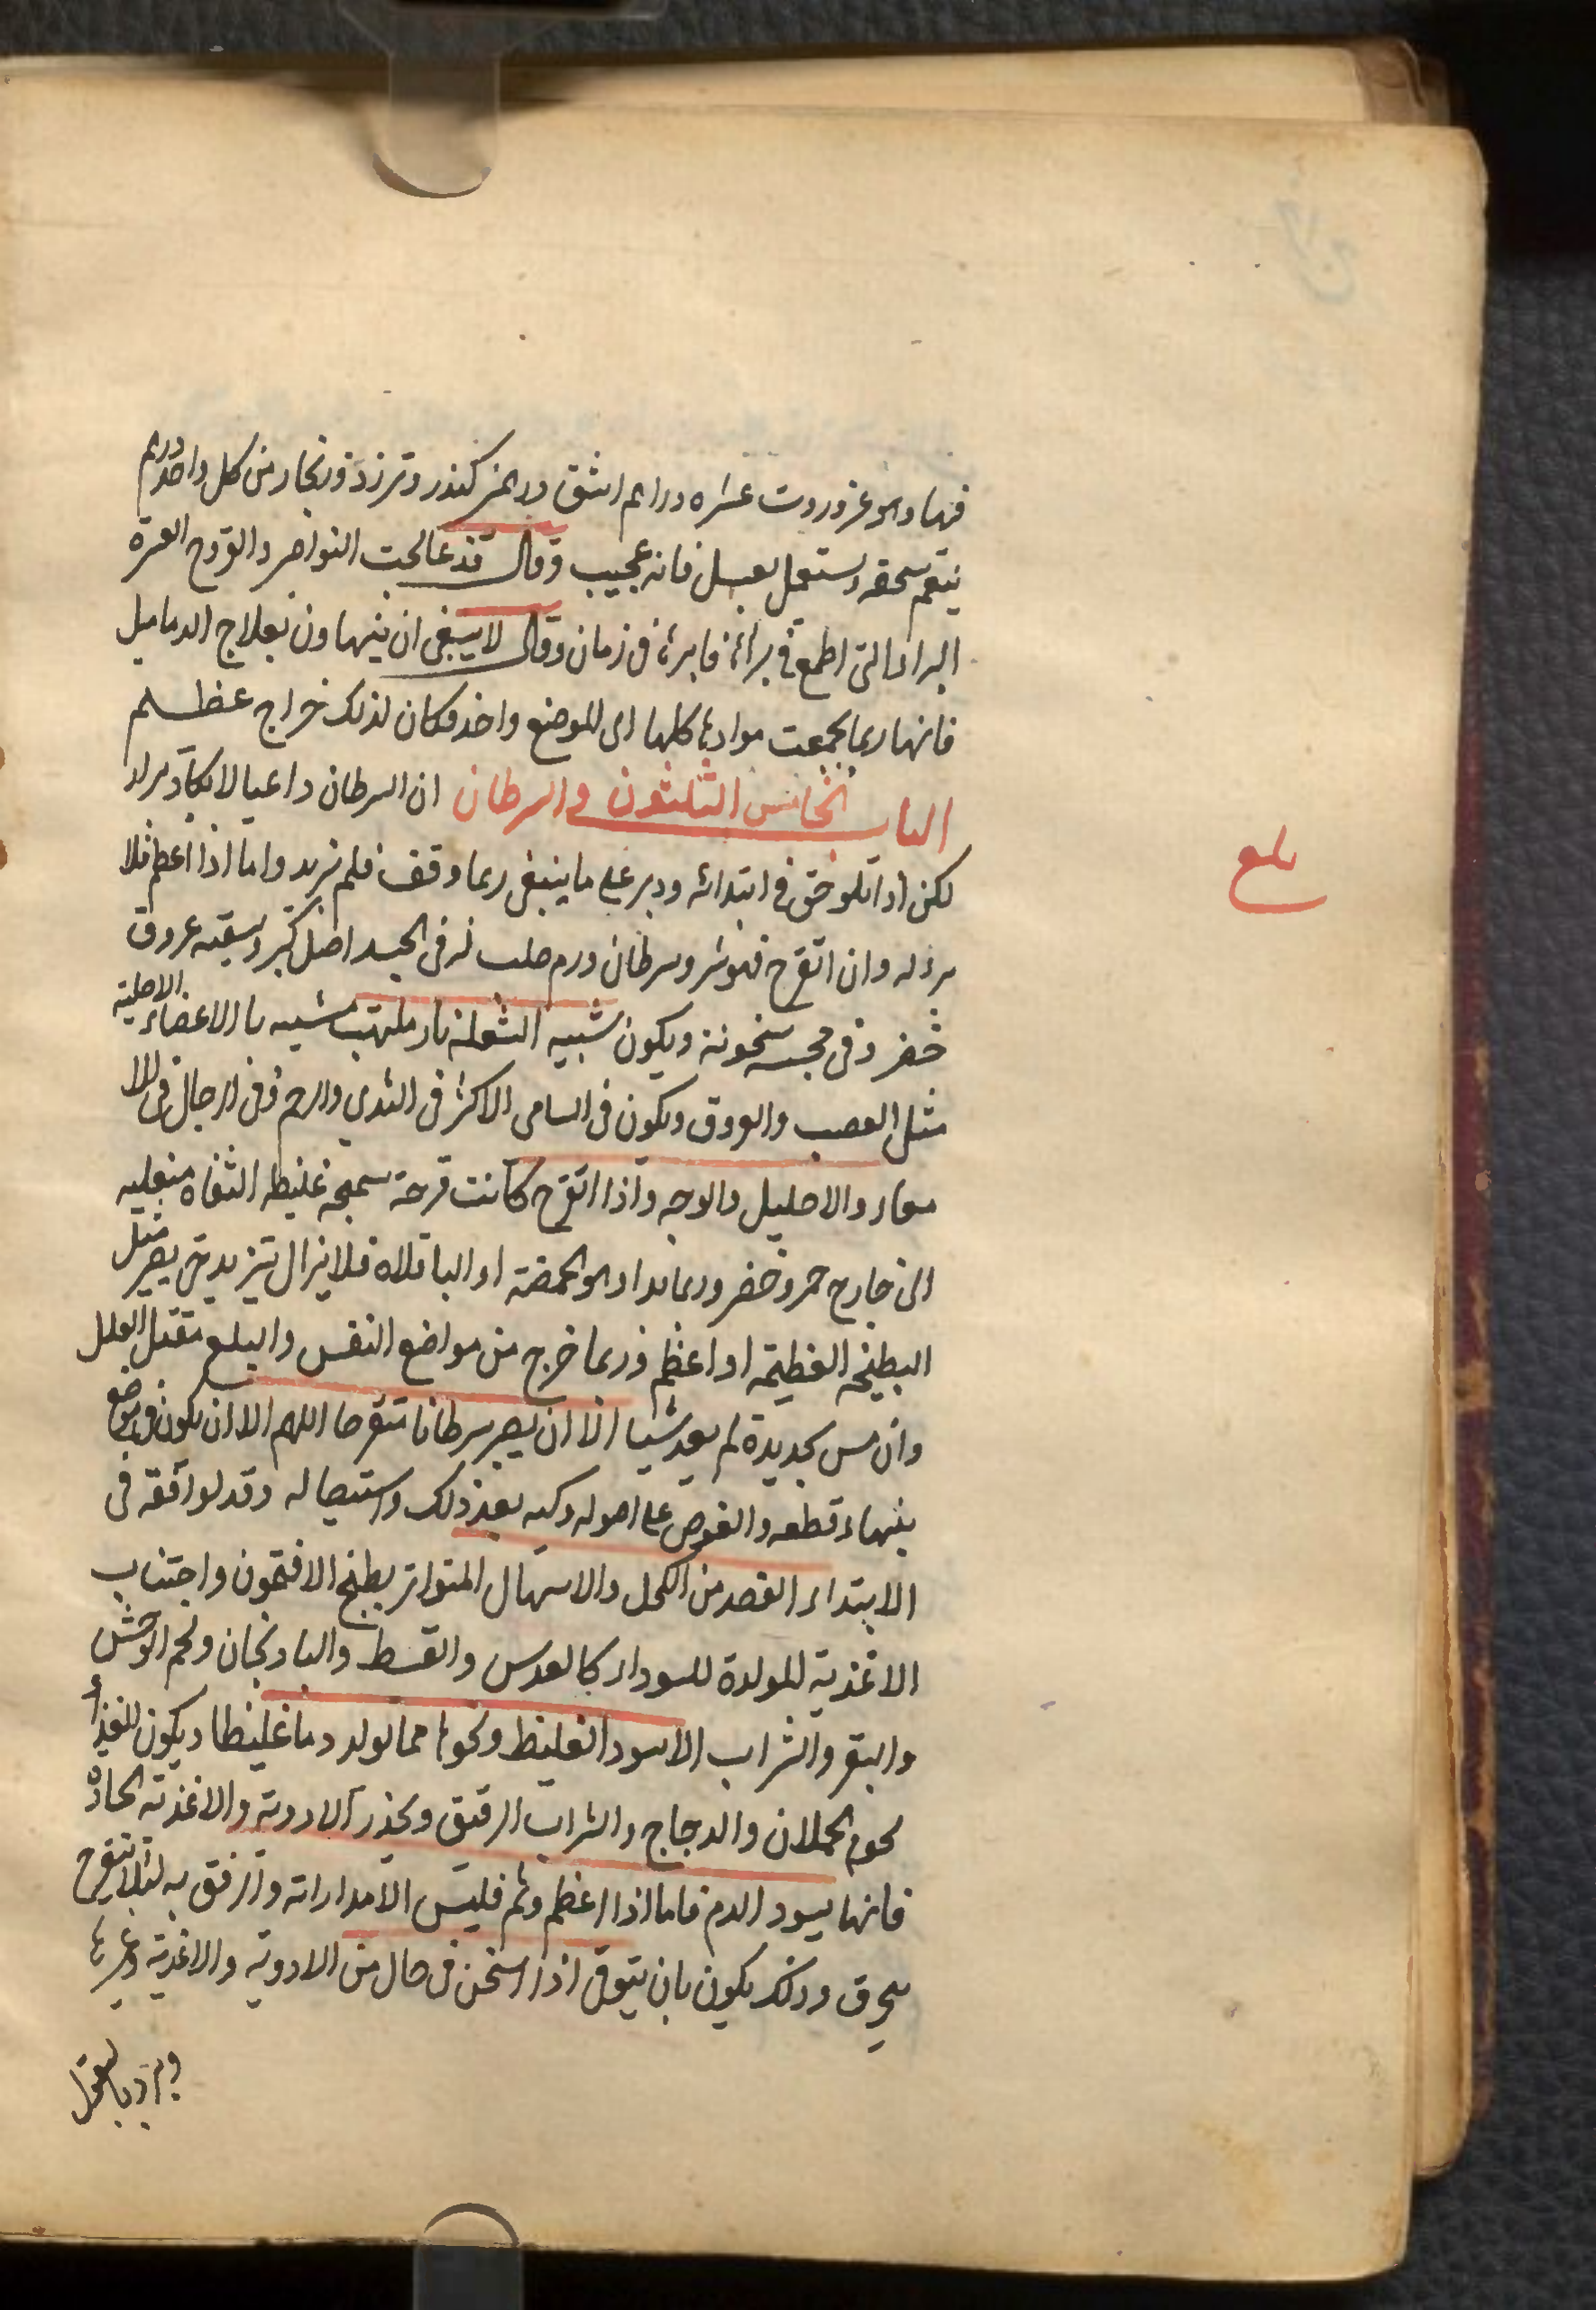 فيها وهو عنزروت عشره دراهم اشق درهمين كندر وترزد وزنجار من كل واحد درهم
ينعم سحقه ويستعمل بعسل فانه عجيب وقال قد عالجت النواصر والقروح العسرة
البرا التى اطمع فى برائها فابرئها فى زمان وقال لا ينبغى ان يتهاون بعلاج الدماميل
فانها ربما تجمعت موادها كلها الى الموضع واحد فكان لذلك خراج عظيم
الباب الخامس الثلثون فى السرطان ان السرطان دا عيا لا يكاد يبرا
لكن اذا تلوحق فى ابتدائه ودبر على ما ينبغى ربما وقف فلم يزيد واما اذا اعظم فلا
برؤ له وان اتقرح فهو شر وسرطان ورم صلب له فى الجسد اصل كبير وسقيه عروق
خضر وفى مجسه سخونة ويكون شبيه الشعلة نار ملتهب شبيه باالاعضاء الاصلية
مثل العصب والعروق ويكون فى النسا فى الاكثر فى الثدى والرحم وفى الرجال فى الا
معاء والاحليل والوجه واذا اتقرح كانت قرحة سمجه غليظه الشفاه منقلبه
الى خارج حمر وخضر وربما بدا وهو كالحمصة او الباقلاه فلا يزال يتزيد حتى يصير مثل
البطيخه العظيمة او اعظم وربما خرج من مواضع النفس والبلع فيقتل العليل
وان مس بحديدة لم يعد شيا الا ان يصير سرطانا متقرحا اللهم الا ان يكون فى موضع
يتهيا قطعه والغوص على اصوله وكيه بعد ذلك واستيصاله وقد لوافقه فى
الابتداء الفصد من الاكحل والاسهال المتواتر بطبخ الافتمون واجتناب
الاغذية المولدة للسوداء كالعدس والقسط والبادنجان ولحم الوحش
والبقر والشراب الاسود الغليظ ونحوها مما يولد دما غليظا ويكون الغذاء
لحوم الحملان والدجاج والشراب الرقيق ويحذر الادوية والاغذية الحاده
فانها يسود الدم فاما اذا اعظم وثم فليس الا مداراته والرفق به لئلا يتقرح
يحرق وذلك يكون بان يتوقى اذا اسخن فى حال من الادوية والاغذية وغيرها
بلغ